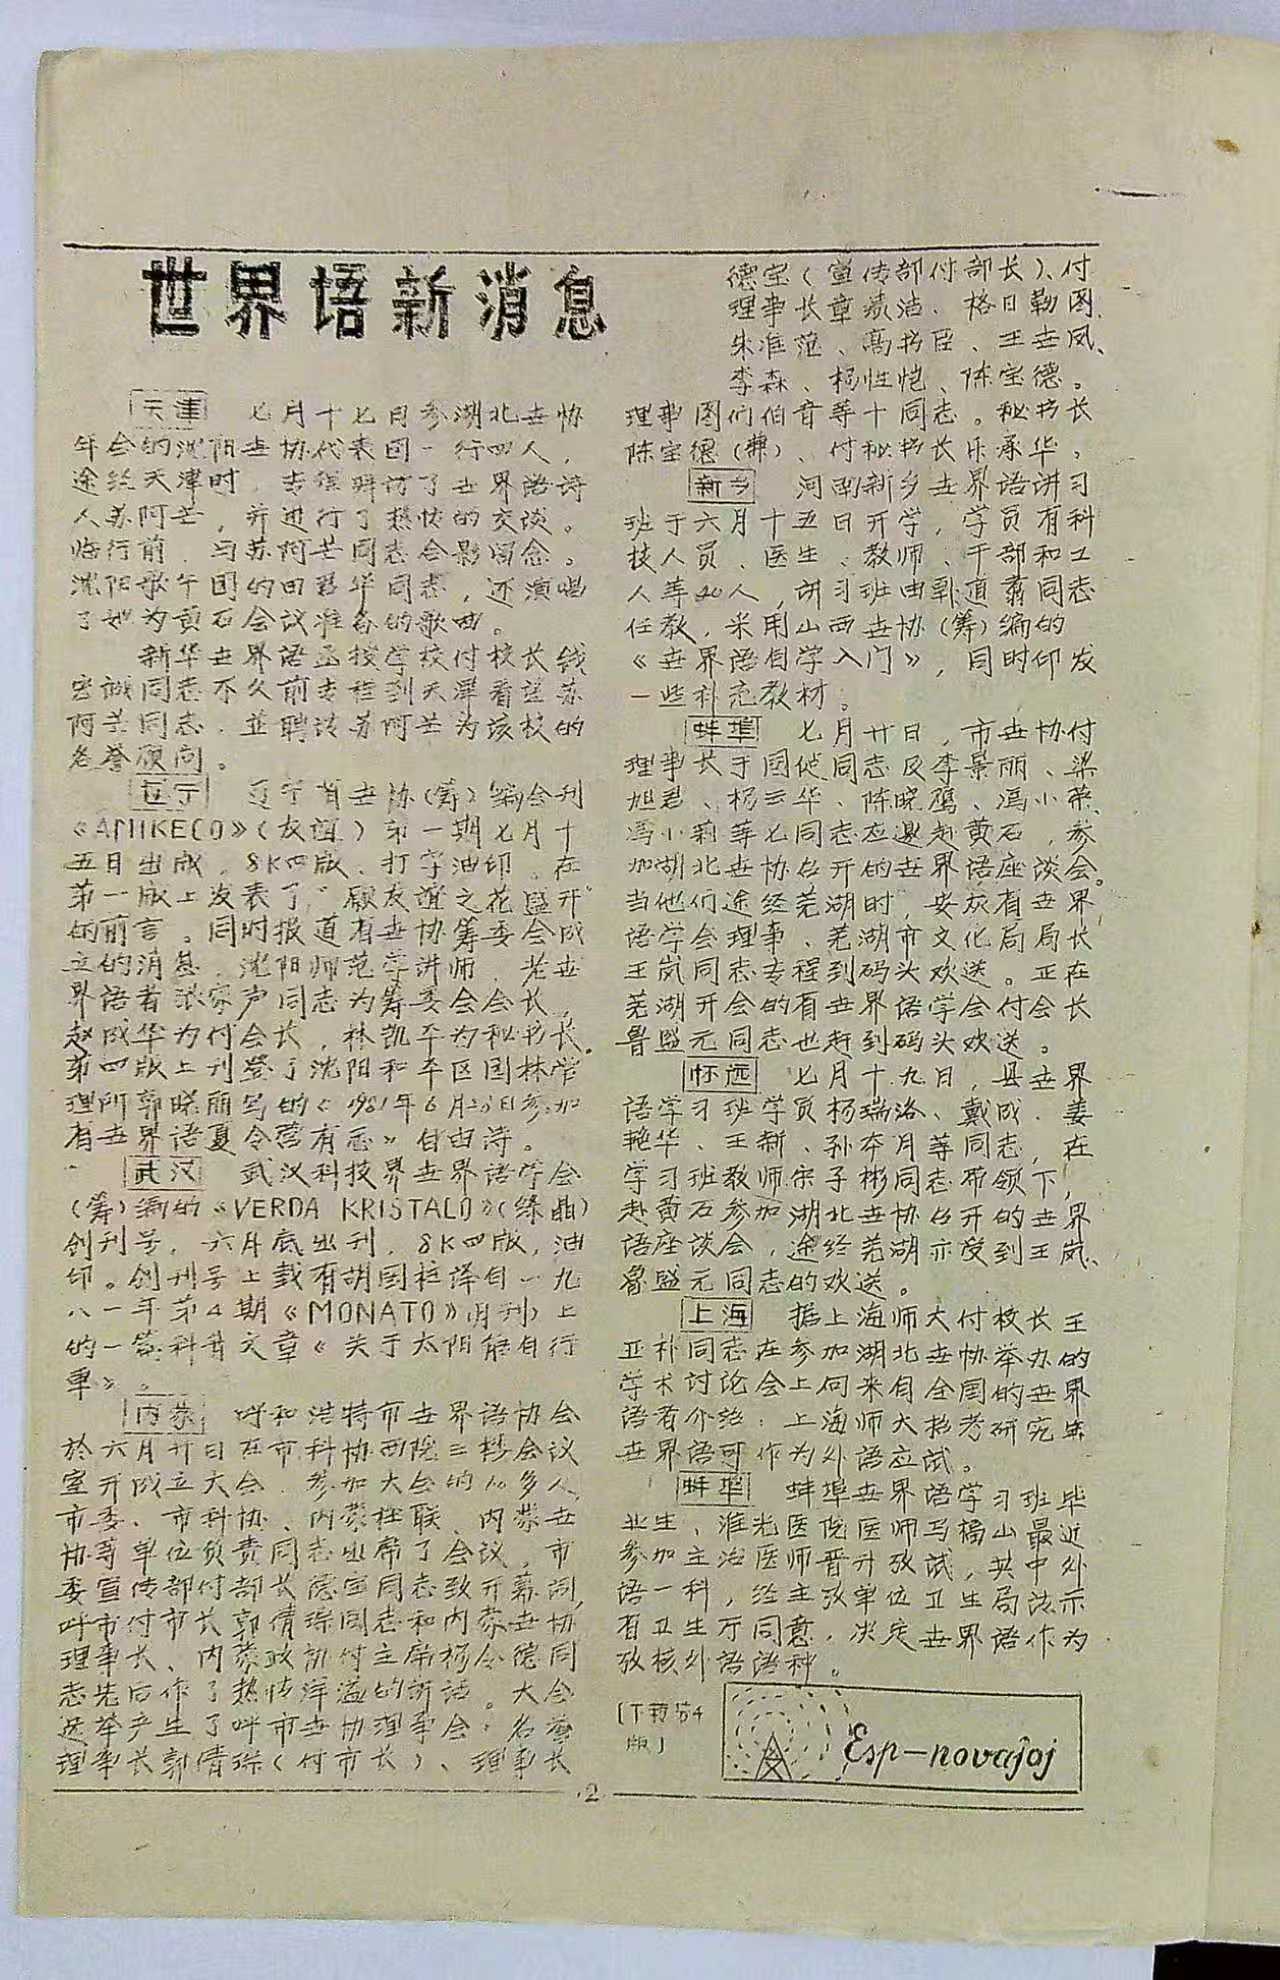 世界语新消息
天津 七月十七日参湖北世协
年会的沈阳世协代表团一行四人，
途经天津时，专程拜访了世界语诗
人苏阿芒，并进行了热忱的交谈。
临行前，与苏阿芒同志合影留念。
沈阳歌午团的田 华同志，还演唱
了她为黄石会议准备的歌曲。
新华世界语函授学校付校长钱
宏诚同志不久前专程到天津看望苏
阿芒同志，並聘该苏阿芒为该校的
名誉顾问。
辽宁 辽宁省世协(筹)编会刊
《AMIKECO》(友谊)第一期七月十
五日出版，8K四版、打字油印。在
第一版上发表了“愿友谊之花盛开”
的前言。同时报道省世协筹委会成
立的消息，沈阳师范学讲师、老世
界语者张家声同志为筹委会会长，
赵成华为付会长，林凯平为秘书长。
第四版上刊登了沈阳和平区园林管
理所郭晓丽写的《1981年6月28日参加
省世界语夏令营有感》自由诗。
武汉 武汉科技界世界语学会
(筹)编的《VERDA KRISTALO》(绿晶)
创刊号，六月底出刊，8K四版，油
印。创刊号上载有胡国柱译自一九
八一年第4期《MONATO》(月刊)上
的一篇科普文章《关于太阳能自行
车》。
内蒙 呼和浩特市世界语协会
於六月廿日在市科协西院三楼会议
室开成立大会，参加大会的 多人，
市委、市科协、内蒙社联、内蒙世
协等单位负责同志出席了会议，市
委宣传部付部长德宝同志致开幕词，
呼市付市长郭倩琮同志和内蒙世协
理事长、内蒙政协付主席杨令德同
志先后作了热情洋溢的讲话。大会
选举产生了呼市世协理事会：名誉
理事长郭倩琮(付市长)、理事长
德宝(宣传部付部长)、付
理事长章 洁、格日勒图、
朱准范、高书臣、王世凤、
李森、杨性恺、陈宝德。
理事图们伯音等十同志。秘书长
陈宝德(兼)、付秘书长乐承华，
新乡 河南新乡世界语讲习
班于六月十五日开学，学员有科
技人员、医生、教师、干部和工
人等20人，讲习班由郭道翥同志
任教，采用山西世协(筹)编的
《世界语自学入门》，同时印发
一些补充教材。
蚌埠 七月廿日，市世协付
理事长于国 同志及李景丽、梁
旭君、杨云华、陈晓鹰、冯小荣、
冯小莉等七同志应邀赴黄石，参
加湖北世协召开的世界语座谈会。
当他们途经芜湖时，安灰省世界
语学会理事、芜湖市文化局局长
王岚同志专程到码头欢送。正在
芜湖开会的省世界语学会付会长
鲁盛元同志也赶到码头欢送。
怀远 七月十九日，县世界
语学习班学员杨瑞洛、戴成、姜
艳华、王新、孙本月等同志，在
学习班教师宋子彬同志带领下，
赴黄石参加湖北世协召开的世界
语座谈会，途经芜湖亦受到王岚、
鲁盛元同志的欢送。
上海 据上海师大付校长王
亚朴同志在参加湖北世协举办的
学术讨论会上向来自全国的世界
语者介绍：上海师大招考研究生
世界语可作为外语应试。
蚌埠 蚌埠世界语学习班毕
业生、淮光医院医师马楠山最近
参加主治医师晋升考试，其中外
语一科，经主考单位卫生局请示
省卫生厅同意，决定世界语作为
考核外语语种。
[下转第4
版]
Esp-novaĵoj
2